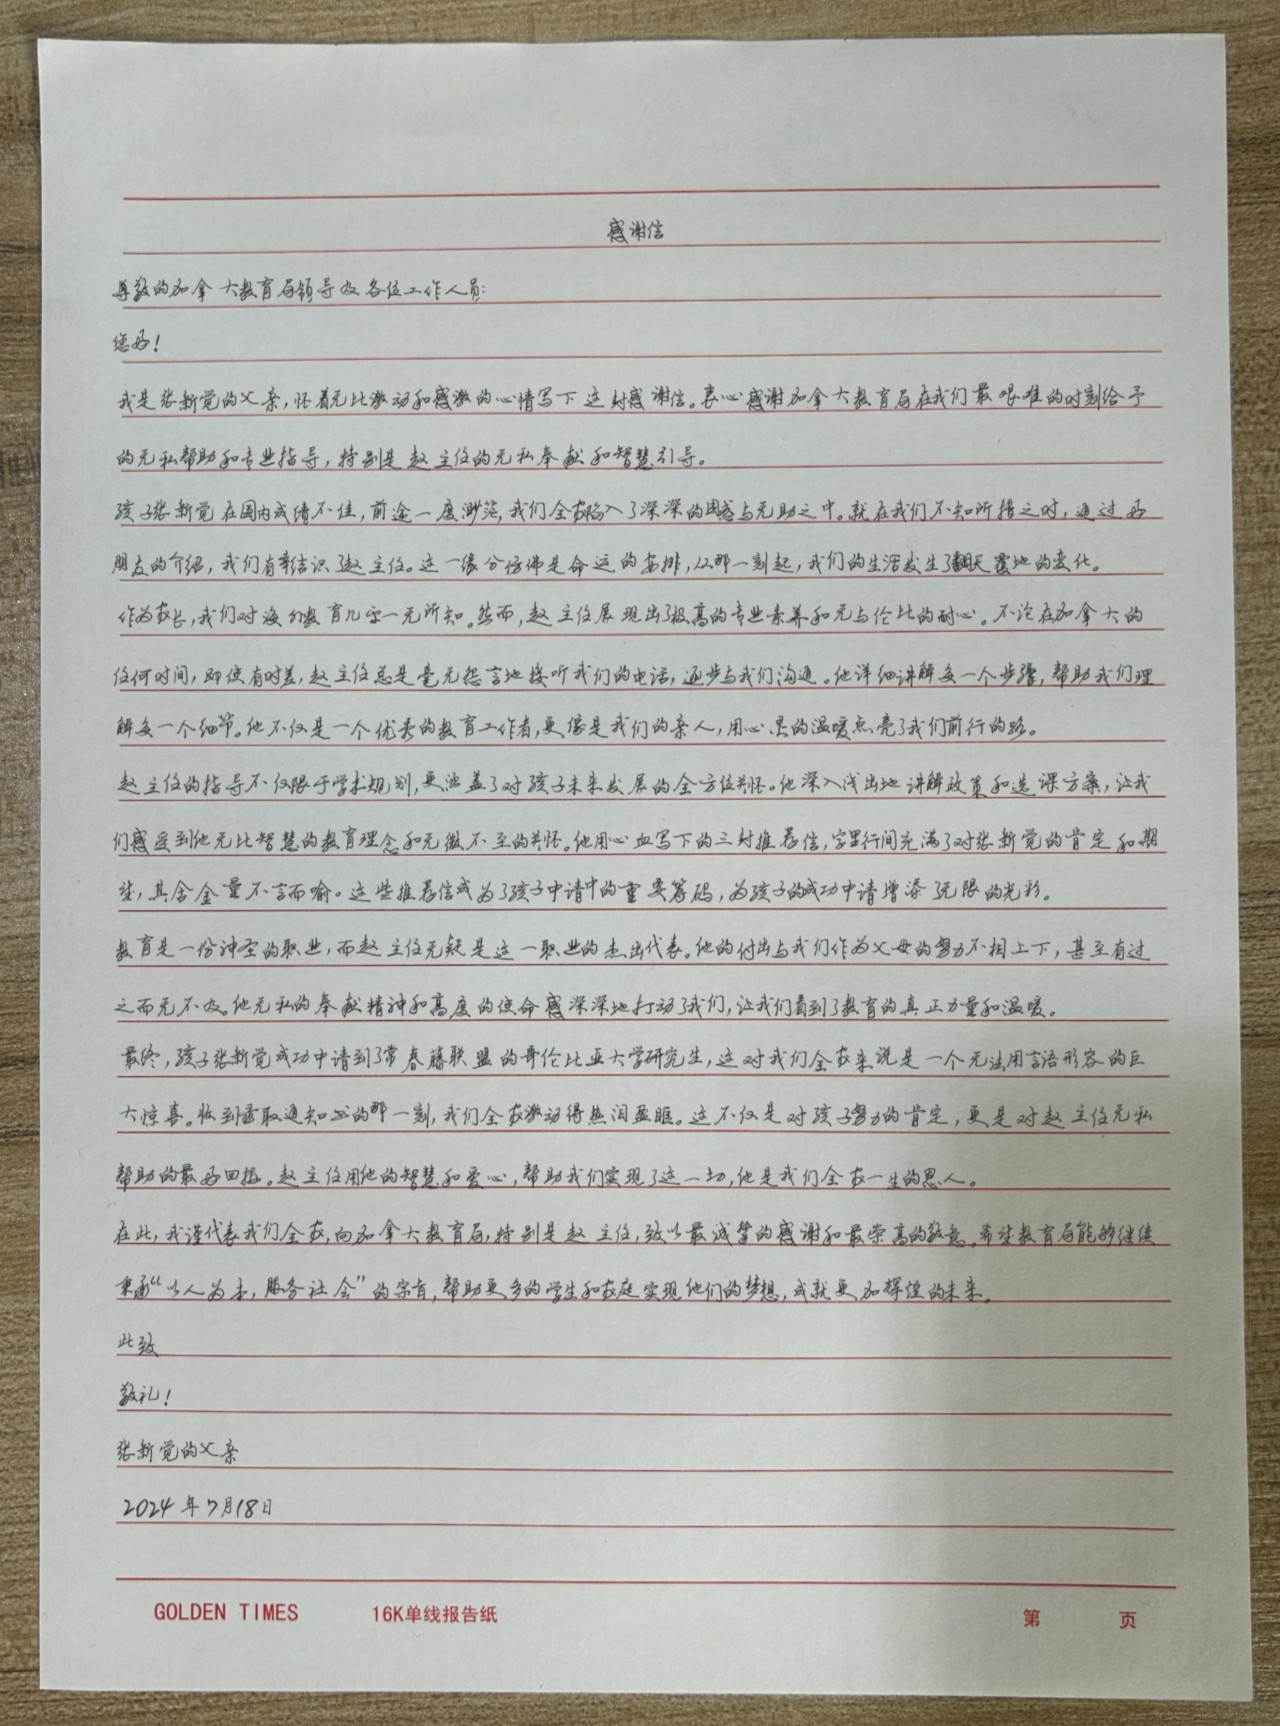 感谢信
尊敬的加拿大教育局领导及各位工作人员:
您好!
我是张新觉的父亲,怀着无比激动和感激的心情写下这封感谢信。衷心感谢加拿大教育局在我们最艰难的时刻给予
的无私帮助和专业指导,特别是赵主任的无私奉献和智慧引导。
孩子张新觉在国内成绩不佳,前途一度渺茫,我们全家陷入了深深的困惑与无助之中。就在我们不知所措之时,通过好
朋友的介绍,我们有幸结识了赵主任。这一缘分仿佛是命运的安排,从那一刻起,我们的生活发生了翻天覆地的变化。
作为家长,我们对海外教育几乎一无所知。然而,赵主任展现出了极高的专业素养和无与伦比的耐心。不论在加拿大的
任何时间,即使有时差,赵主任总是毫无怨言地接听我们的电话,逐步与我们沟通。他详细讲解每一个步骤,帮助我们理
解每一个细节。他不仅是一个优秀的教育工作者,更像是我们的亲人,用心灵的温暖点亮了我们前行的路。
赵主任的指导不仅限于学术规划,更涵盖了对孩子未来发展的全方位关怀。他深入浅出地讲解政策和选课方案,让我
们感受到他无比智慧的教育理念和无微不至的关怀。他用心血写下的三封推荐信,字里行间充满了对张新觉的肯定和期
望,其含金量不言而喻。这些推荐信成为了孩子申请中的重要筹码,为孩子的成功申请增添了无限的光彩。
教育是一份神圣的职业,而赵主任无疑是这一职业的杰出代表。他的付出与我们作为父母的努力不相上下,甚至有过
之而无不及。他无私的奉献精神和高度的使命感深深地打动了我们,让我们看到了教育的真正力量和温暖。
最终,孩子张新觉成功申请到了常春藤联盟的哥伦比亚大学研究生,这对我们全家来说是一个无法用言语形容的巨
大惊喜。收到录取通知书的那一刻,我们全家激动得热泪盈眶。这不仅是对孩子努力的肯定,更是对赵主任无私
帮助的最好回报。赵主任用他的智慧和爱心,帮助我们实现了这一切,他是我们全家一生的恩人。
在此,我谨代表我们全家,向加拿大教育局,特别是赵主任,致以最诚挚的感谢和最崇高的敬意。希望教育局能够继续
秉承“以人为本,服务社会”的宗旨,帮助更多的学生和家庭实现他们的梦想,成就更加辉煌的未来。
此致
敬礼!
张新觉的父亲
2024年7月18日
GOLDEN TIMES 16K单线报告纸 第 页